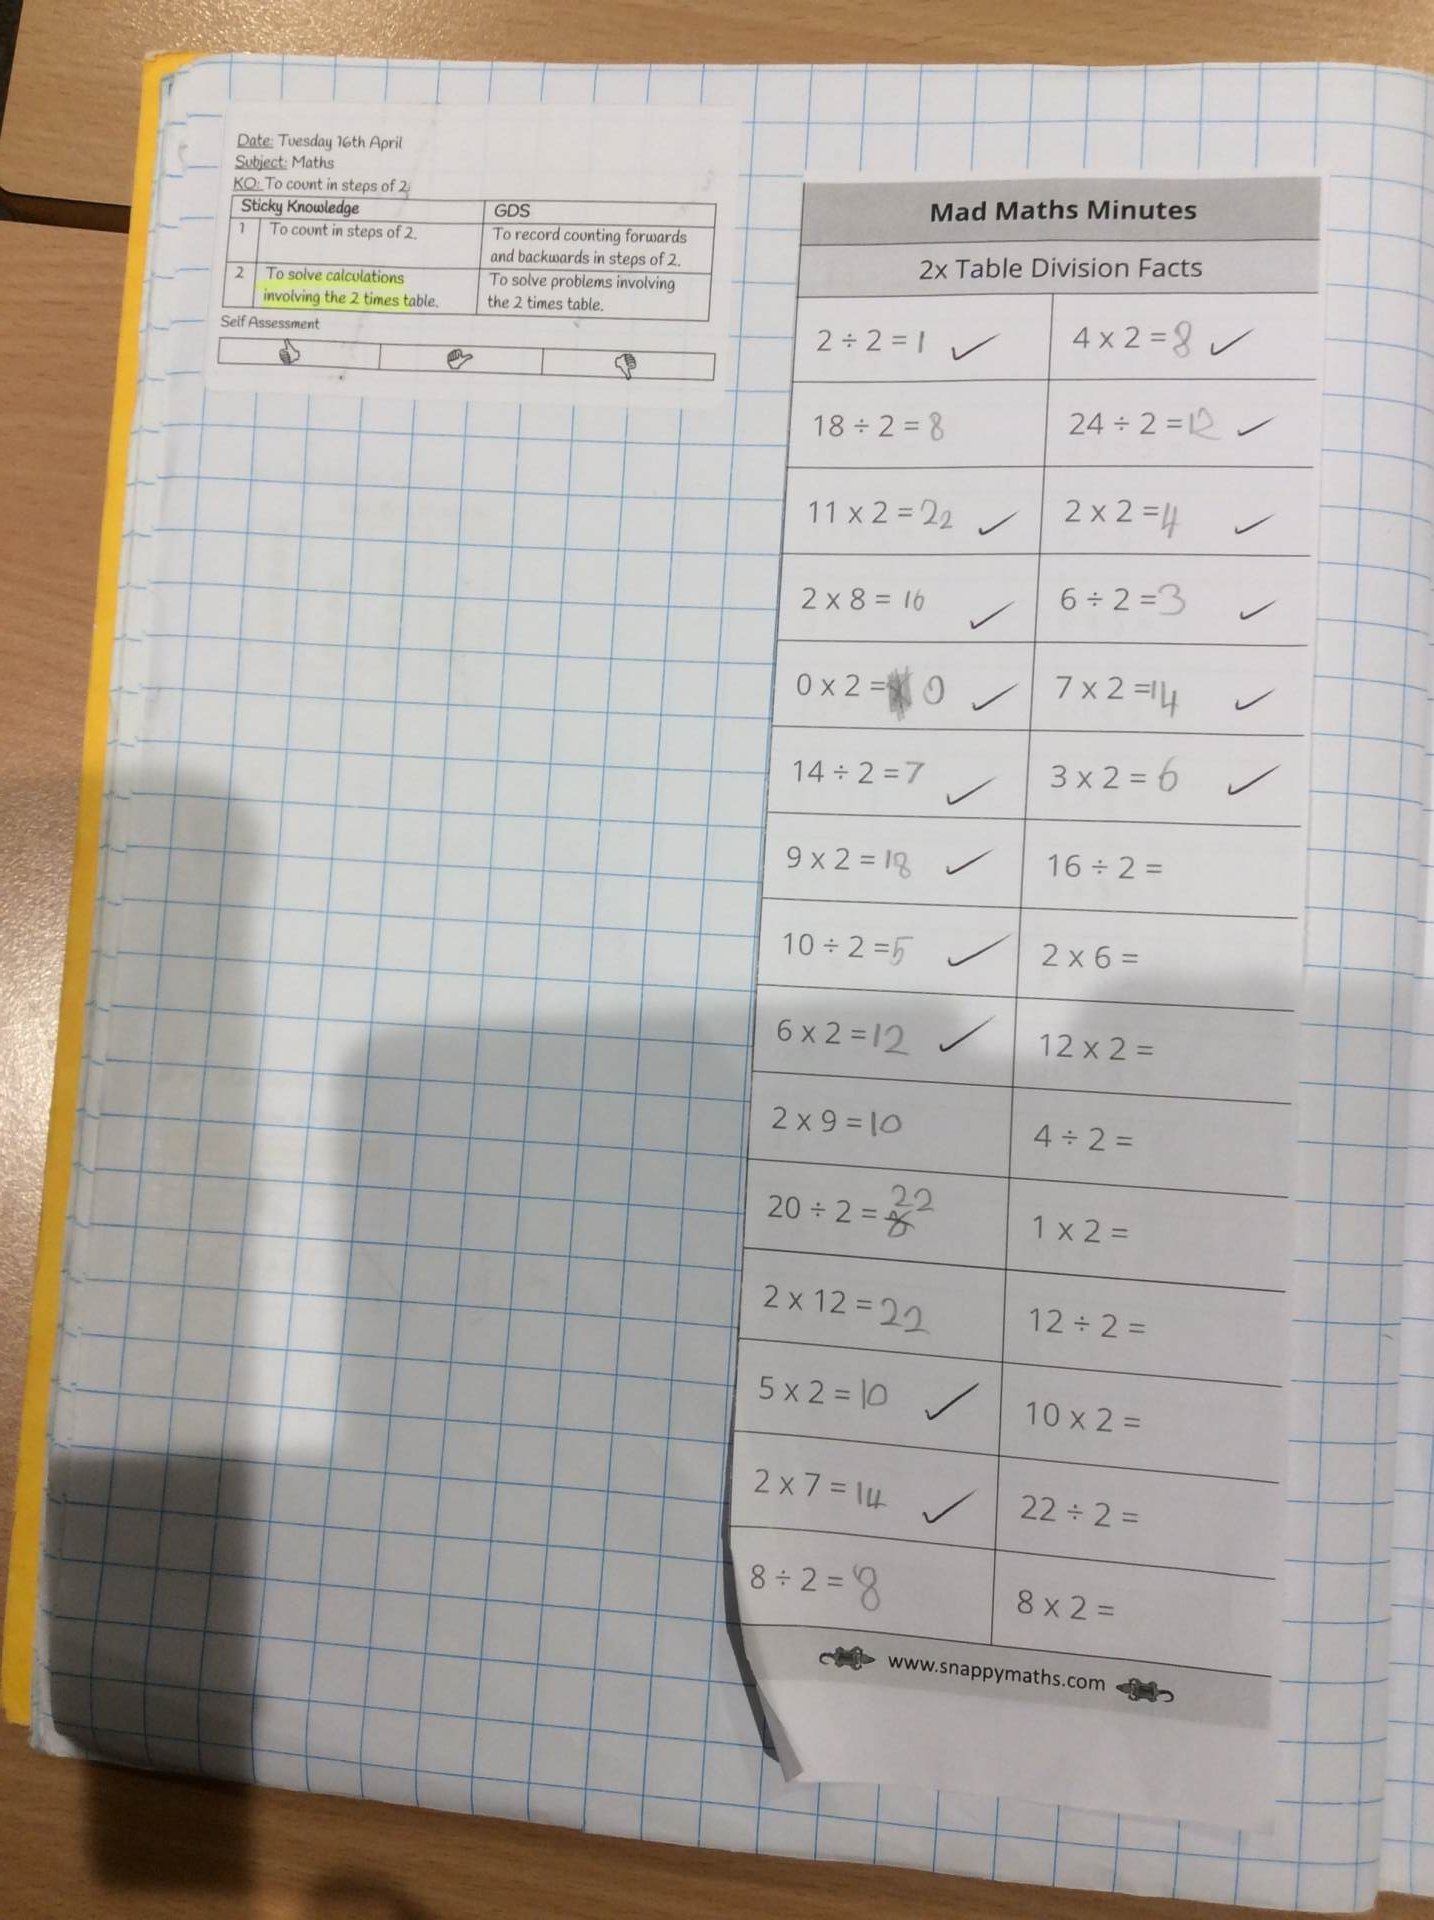 Date: Tuesday 16th April
Subject: Maths
KO: To count in steps of 2
Sticky Knowledge GDS
1 To count in steps of 2. To record counting forwards
and backwards in steps of 2.
2 To solve calculations To solve problems involving
involving the 2 times table. the 2 times table.
Self Assessment
Mad Maths Minutes
2x Table Division Facts
2 ÷ 2 = 1 4 x 2 = 8
18 ÷ 2 = 8 24 ÷ 2 = 12
11 x 2 = 22 2 x 2 = 4
2 x 8 = 16 6 ÷ 2 = 3
0 x 2 = 0 7 x 2 = 14
14 ÷ 2 = 7 3 x 2 = 6
9 x 2 = 18 16 ÷ 2 =
10 ÷ 2 = 5 2 x 6 =
6 x 2 = 12 12 x 2 =
2 x 9 = 10 4 ÷ 2 =
20 ÷ 2 = 22 1 x 2 =
2 x 12 = 22 12 ÷ 2 =
5 x 2 = 10 10 x 2 =
2 x 7 = 14 22 ÷ 2 =
8 ÷ 2 = 8 8 x 2 =
www.snappymaths.com